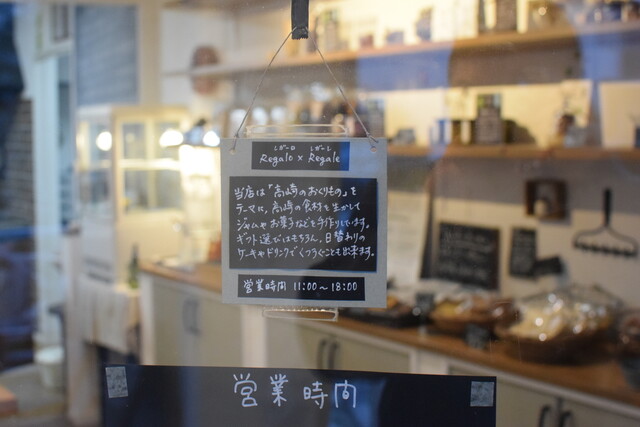 レガーロ レガーレ
Regalo × Regale
当店は「高崎のおくりもの」を
テーマに、高崎の食材を生かして
ジャムやお菓子などを手作りしています。
ギフト選びはもちろん、日替わりの
ケーキやドリンクでくつろぐことも出来ます。
営業時間 11:00〜18:00
営業時間